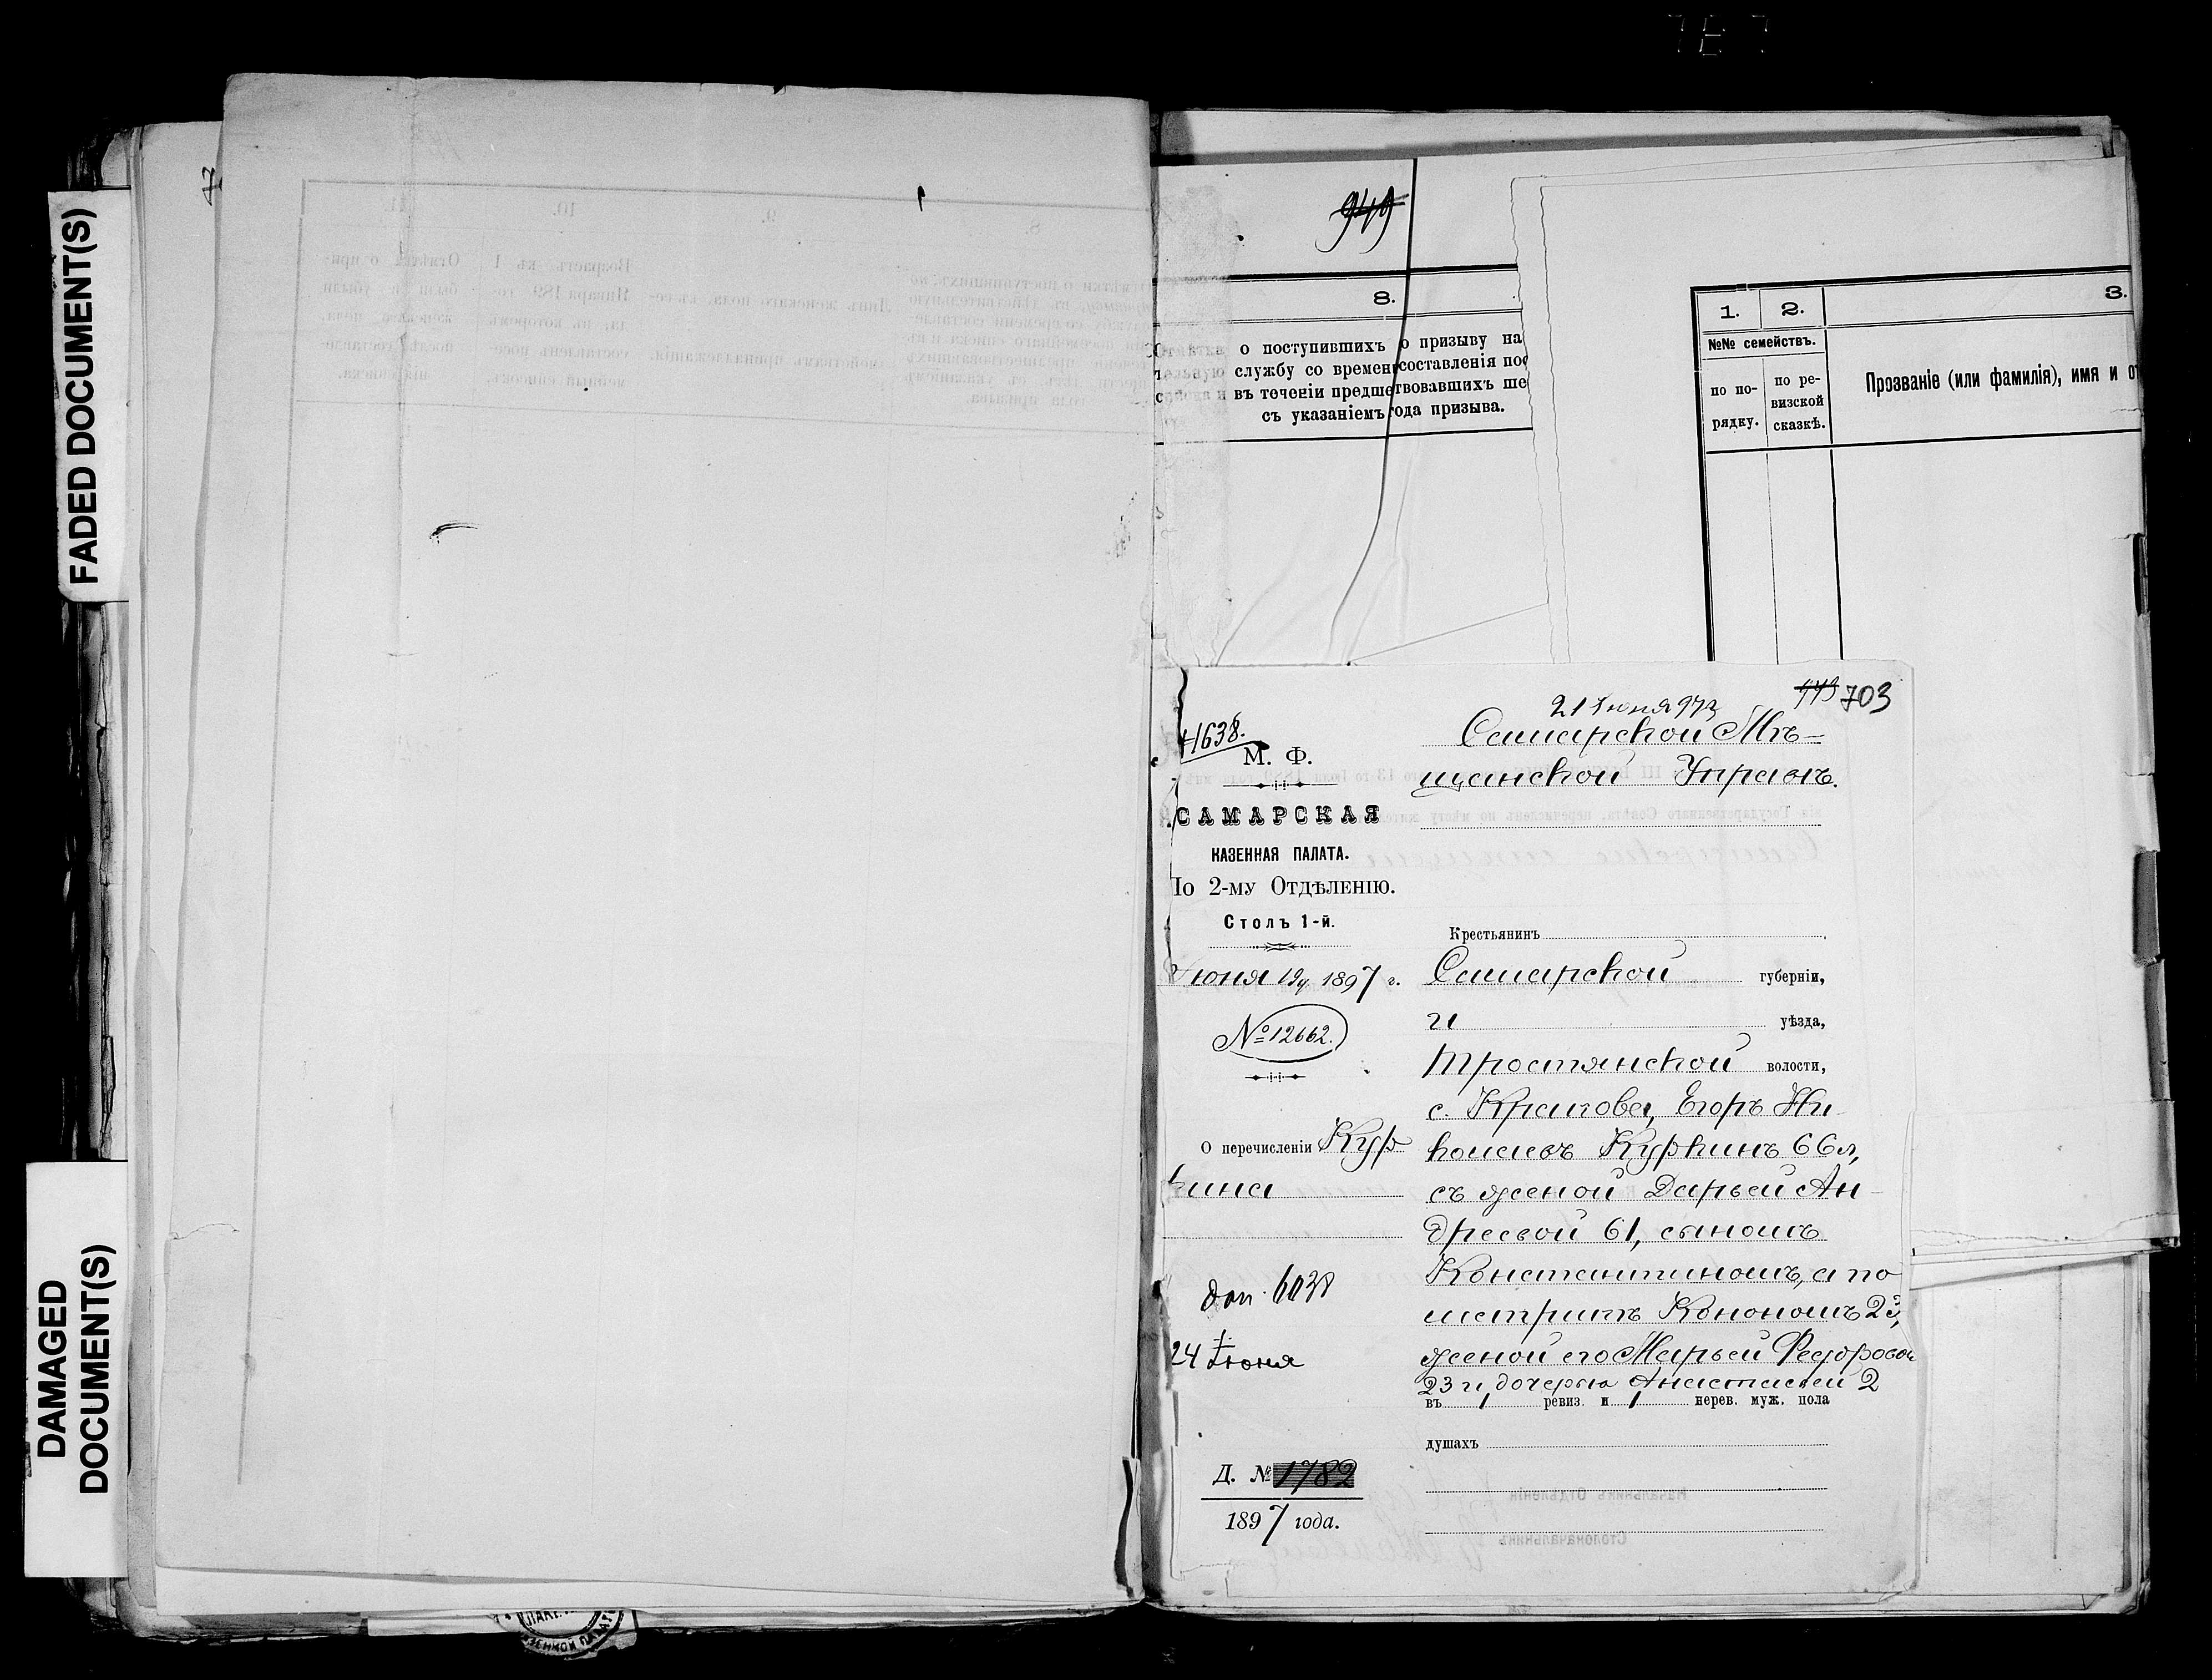 FADED DOCUMENT(S)
DAMAGED
DOCUMENT(S)
949
8.
о поступившихъ по призыву на
службу со времени составленія пос
въ теченіи предшествовавшихъ ше
съ указаніемъ года призыва.
1.
2.
3.
№№ семействъ.
по по-
рядку.
по ре-
визской
сказкѣ.
Прозваніе (или фамилія), имя и от
703
21 Іюня
1638.
М. Ф.
САМАРСКАЯ
КАЗЕННАЯ ПАЛАТА.
По 2-му Отдѣленію.
Столъ 1-й.
Іюня 19 1897 г.
№ 12662.
О перечисленіи Кур-
кина
доп. 6038
24 Іюня
Д. № 1782
1897 года.
Самарской Мѣ-
щанской Управѣ.
Крестьянинъ
Самарской губерніи,
и уѣзда,
Тростянской волости,
с. Крашова, Егоръ Ни-
колаевъ Куркинъ 66 л,
съ женой Дарьей Ан-
дреевой 61, сыномъ
Константиномъ, а по
метрикѣ Конономъ 23,
женой его Марьей Федоровой
23 и дочерью Анастасіей 2
въ 1 ревиз. и 1 нерев. муж. пола
душахъ